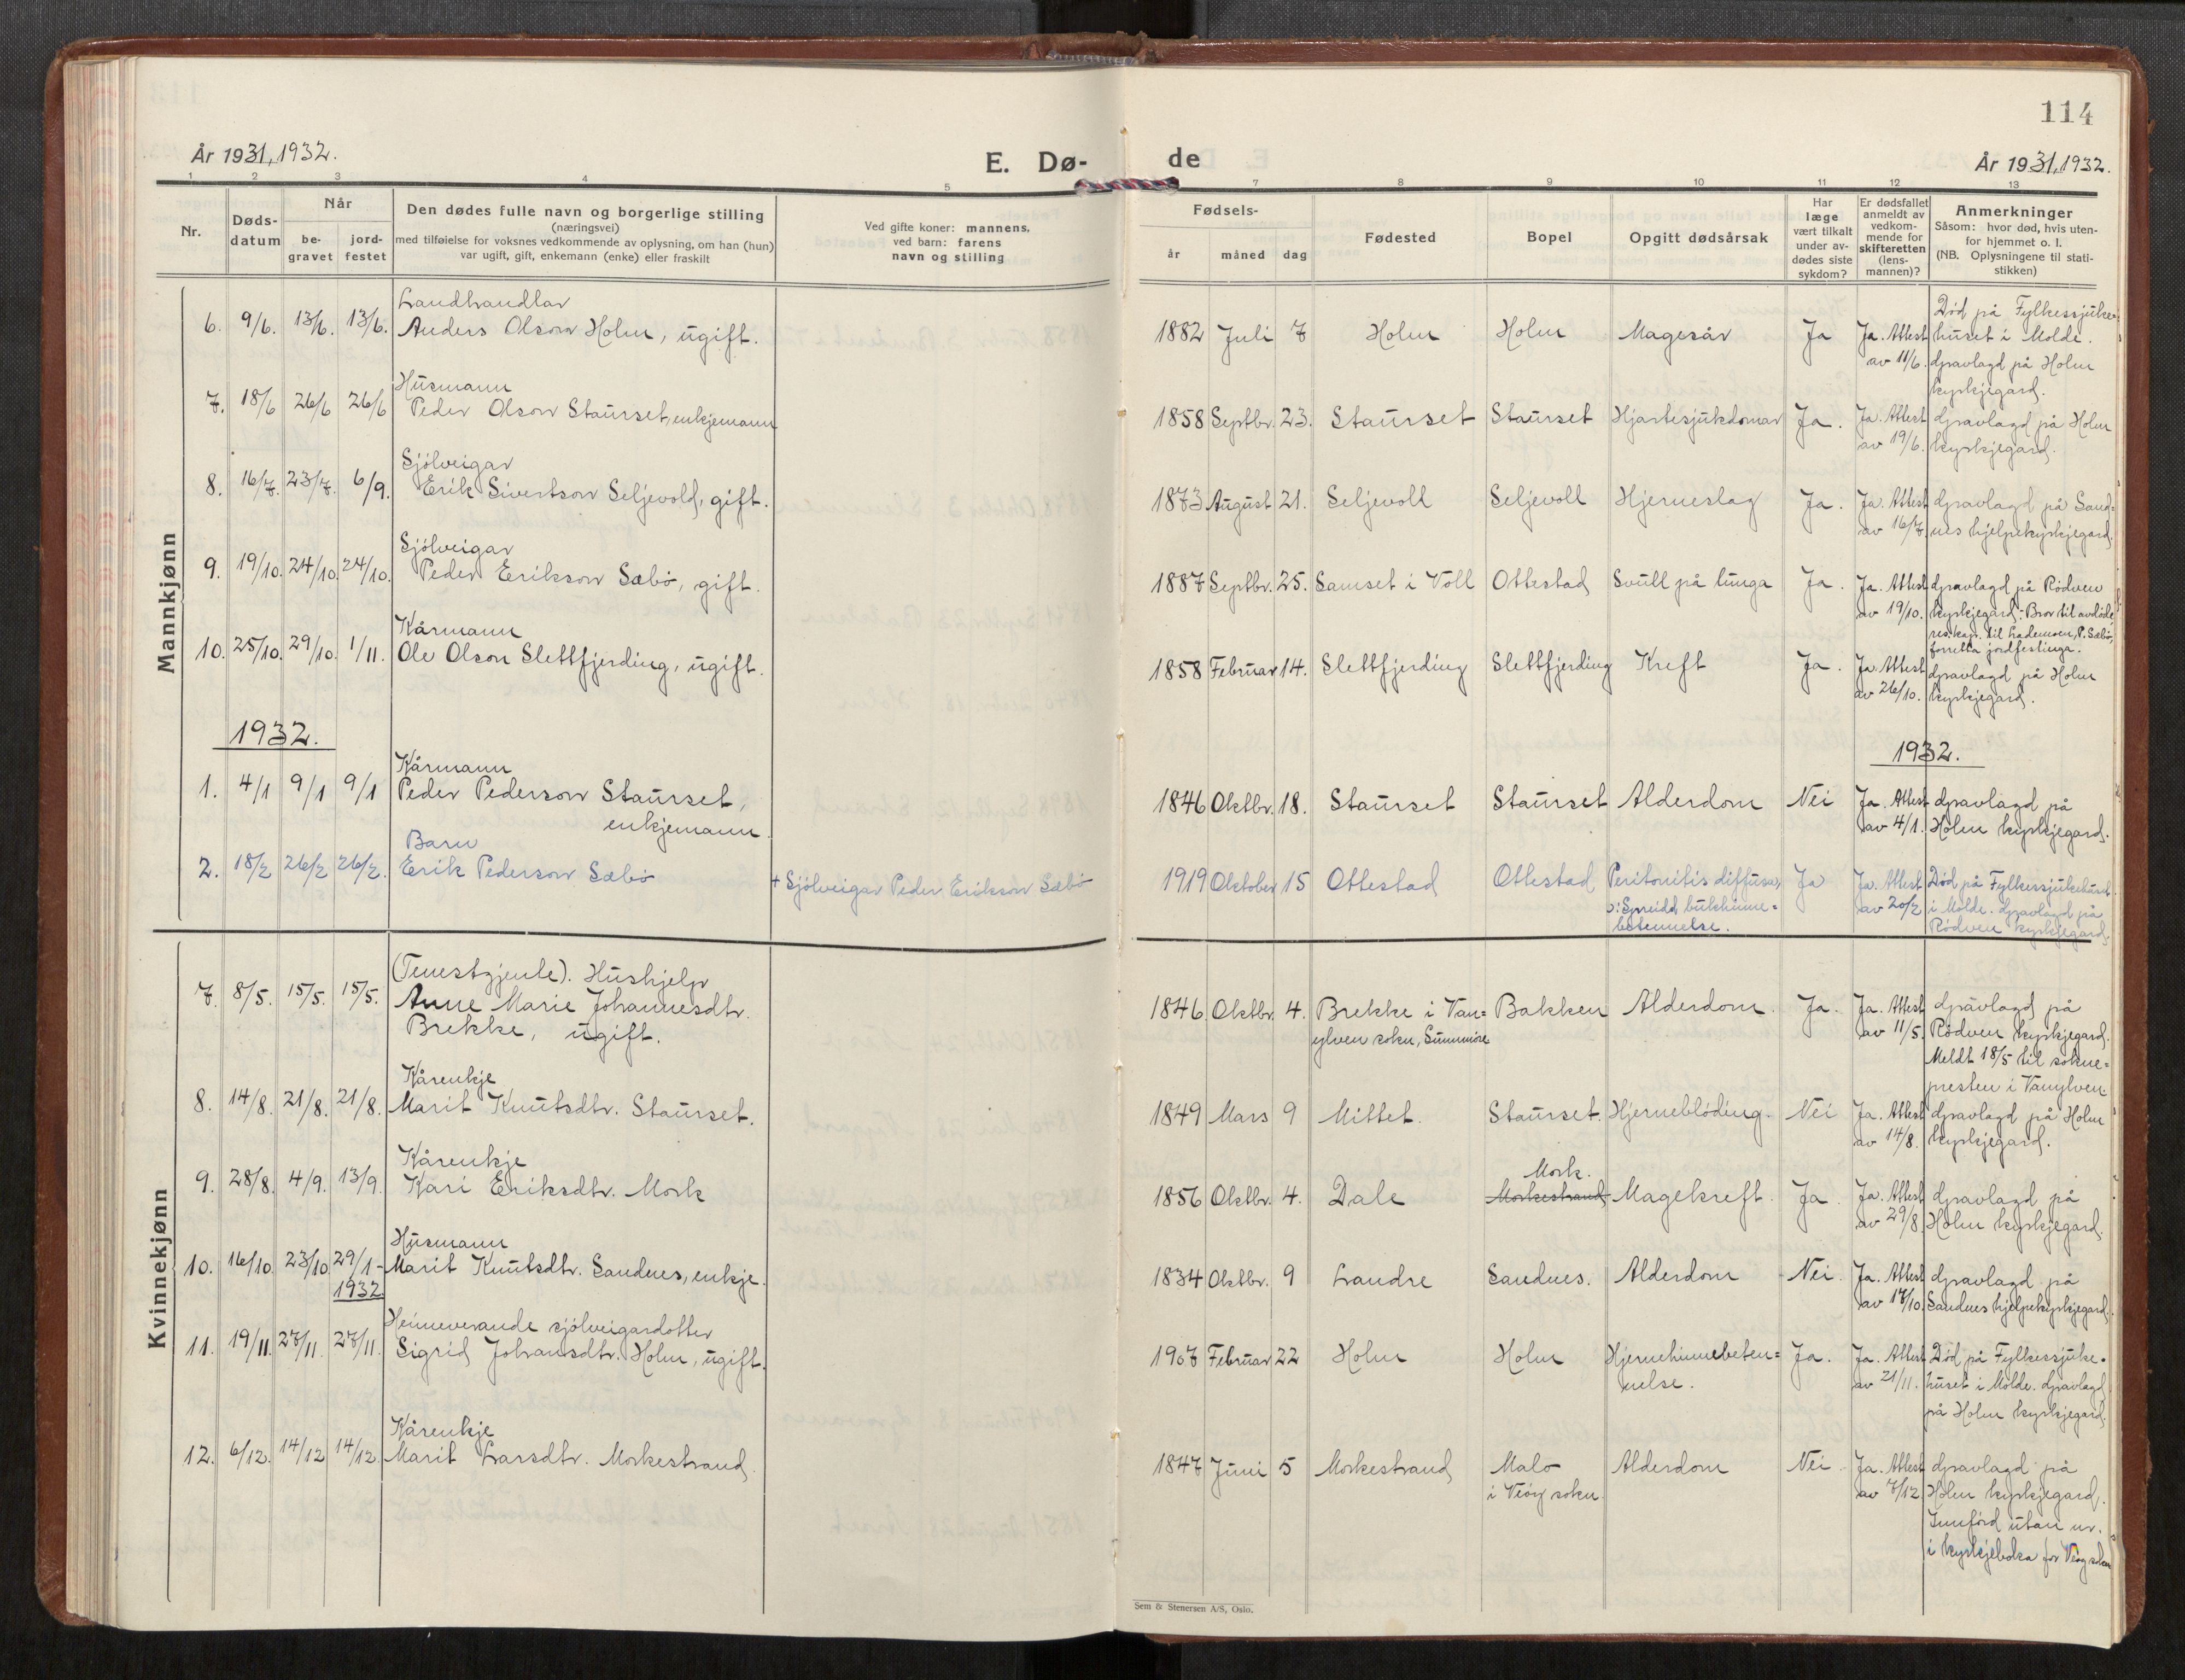 114
År 1931, 1932.
E. Dø-
de
År 1931, 1932.
1 2 3 4 5 7 8 9 10 11 12 13
Nr.
Døds-
datum
Når
be-
gravet
jord-
festet
Den dødes fulle navn og borgerlige stilling
(næringsvei)
med tilføielse for voksnes vedkommende av oplysning, om han (hun)
var ugift, gift, enkemann (enke) eller fraskilt
Ved gifte koner: mannens,
ved barn: farens
navn og stilling
Fødsels-
år måned dag
Fødested
Bopel
Opgitt dødsårsak
Har
læge
vært tilkalt
under av-
dødes siste
sykdom?
Er dødsfallet
anmeldt av
vedkom-
mende for
skifteretten
(lens-
mannen)?
Anmerkninger
Såsom: hvor død, hvis uten-
for hjemmet o. l.
(NB. Oplysningene til stati-
stikken)
Mannkjønn
Landhandlar
6. 9/6. 13/6. 13/6. Anders Olson Holm, ugift. 1882 Juli 7 Holm Holm Magesår Ja Ja. Attest
av 11/6.
Død på Fylkessjuke-
huset i Molde.
Gravlagd på Holm
kyrkjegard.
Husmann
7. 18/6 26/6 26/6 Peder Olson Staurset, enkjemann 1858 Septbr. 23. Staurset Staurset Hjartesjukdomar Ja. Ja. Attest
av 19/6.
Gravlagd på Holm
kyrkjegard.
Sjölveigar
8. 16/7. 23/7. 6/9. Erik Sivertson Seljevold, gift. 1873 August 21. Seljevoll Seljevoll Hjerneslag Ja. Ja. Attest
av 16/7.
Gravlagd på Sand=
nes hjelpekyrkjegard.
Sjölveigar
9. 19/10. 24/10. 24/10. Peder Erikson Sæbö, gift. 1887 Septbr. 25. Samset i Voll Ottestad Svull på lunga Ja. Ja. Attest
av 19/10.
Gravlagd på Rödven
kyrkjegard. Bror til avdöde,
res.kap. til Lademoen, P. Sæbö,
forretta jordfestinga.
Kårmann
10. 25/10. 29/10. 1/11. Ole Olson Slettfjerding, ugift. 1858 Februar 14. Slettfjerding Slettfjerding Kreft Ja. Ja. Attest
av 26/10.
Gravlagd på Holm
kyrkjegard.
1932.
1932.
Kårmann
1. 4/1 9/1 9/1 Peder Pederson Staurset,
enkjemann.
1846 Oktbr. 18. Staurset Staurset Alderdom Nei Ja. Attest
av 4/1.
Gravlagd på
Holm kyrkjegard.
Barn
2. 18/2 26/2 26/2. Erik Pederson Sæbö + Sjölveigar Peder Erikson Sæbö 1919 Oktober 15 Ottestad Ottestad Peritonitis diffusa,
ɔ: Spreidd bukhinne=
betennelse.
Ja Ja. Attest
av 20/2
Död på Fylkessjukehuset
i Molde. Gravlagd på
Rödven kyrkjegard.
Kvinnekjønn
(Tenestgjente). Hushjelp
7. 8/5. 15/5. 15/5. Anne Marie Johannesdtr.
Brekke, ugift.
1846 Oktbr. 4. Brekke i Van=
ylven sokn, Sunnmöre
Bakken Alderdom. Ja. Ja. Attest
av 11/5.
Gravlagd på
Rödven kyrkjegard.
Meldt 18/5 til sokne=
presten i Vanylven
Kårenkje
8. 14/8. 21/8. 21/8. Marit Knutsdtr. Staurset. 1849 Mars 9 Mittet. Staurset. Hjerneblöding. Nei Ja. Attest
av 14/8.
Gravlagd på Holm
kyrkjegard.
Kårenkje
9. 28/8. 4/9. 13/9. Kari Eriksdtr. Mork 1856 Oktbr. 4. Dale Mork.
Morkestrand
Magekreft. Ja. Ja. Attest
av 29/8.
Gravlagd på
Holm kyrkjegard.
Husmann
10. 16/10. 23/10 29/1-
1932
Marit Knutsdtr. Sandnes, enkje. 1834 Oktbr. 9 Landre Sandnes. Alderdom Nei. Ja. Attest
av 17/10.
Gravlagd på
Sandnes hjelpekyrkjegard.
Heimeverande sjölveigardotter
11. 19/11. 27/11. 27/11. Sigrid Johansdtr. Holm, ugift. 1907 Februar 22 Holm Holm Hjernehinnebeten=
nelse.
Ja. Ja. Attest
av 21/11.
Död på Fylkessjuke-
huset i Molde. Gravlagd
på Holm kyrkjegard.
Kårenkje
12. 6/12. 14/12 14/12 Marit Larsdtr. Morkestrand. 1847 Juni 5 Morkestrand Malo
i Veöy sokn.
Alderdom Nei. Ja. Attest
av 7/12.
Gravlagd på
Holm kyrkjegard.
Innförd utan nr.
i kyrkjeboka for Veöy sokn
Sem & Stenersen A/S, Oslo.